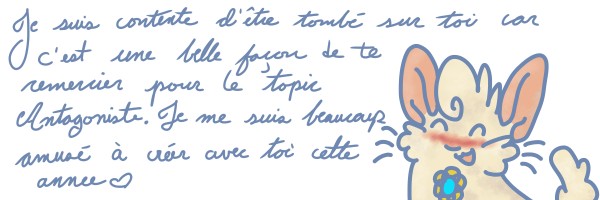 Je suis contente d'être tombé sur toi car
c'est une belle façon de te
remercier pour le topic
Antagoniste. Je me suis beaucoup
amusé à créer avec toi cette
annee♡